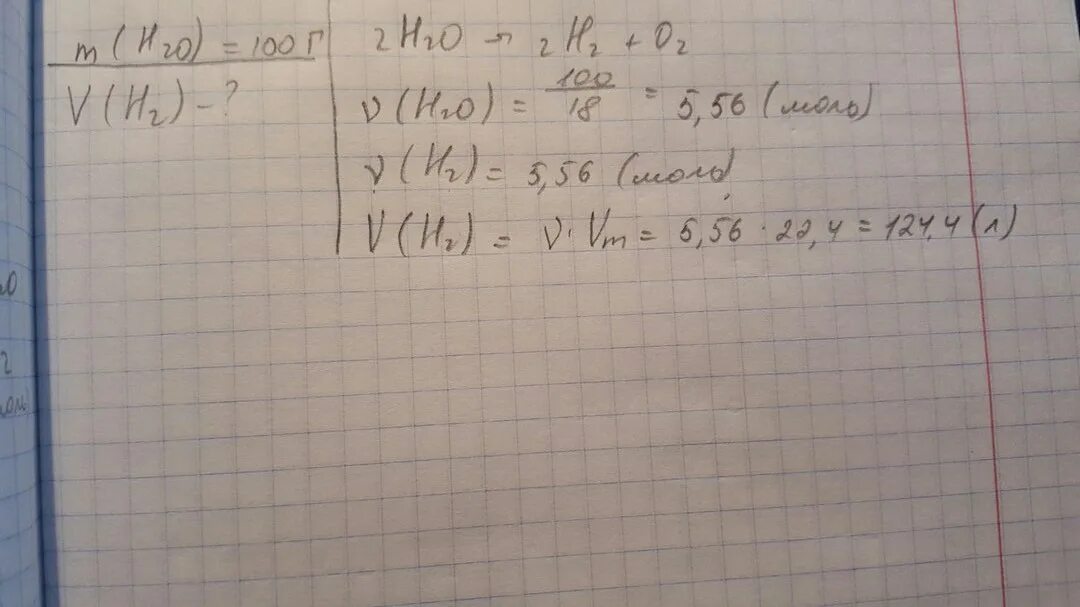 m(H2O) = 100 г
V(H2) - ?
2H2O → 2H2 + O2
ν(H2O) = 100/18 = 5,56 (моль)
ν(H2) = 5,56 (моль)
V(H2) = ν · Vm = 5,56 · 22,4 = 124,4 (л)